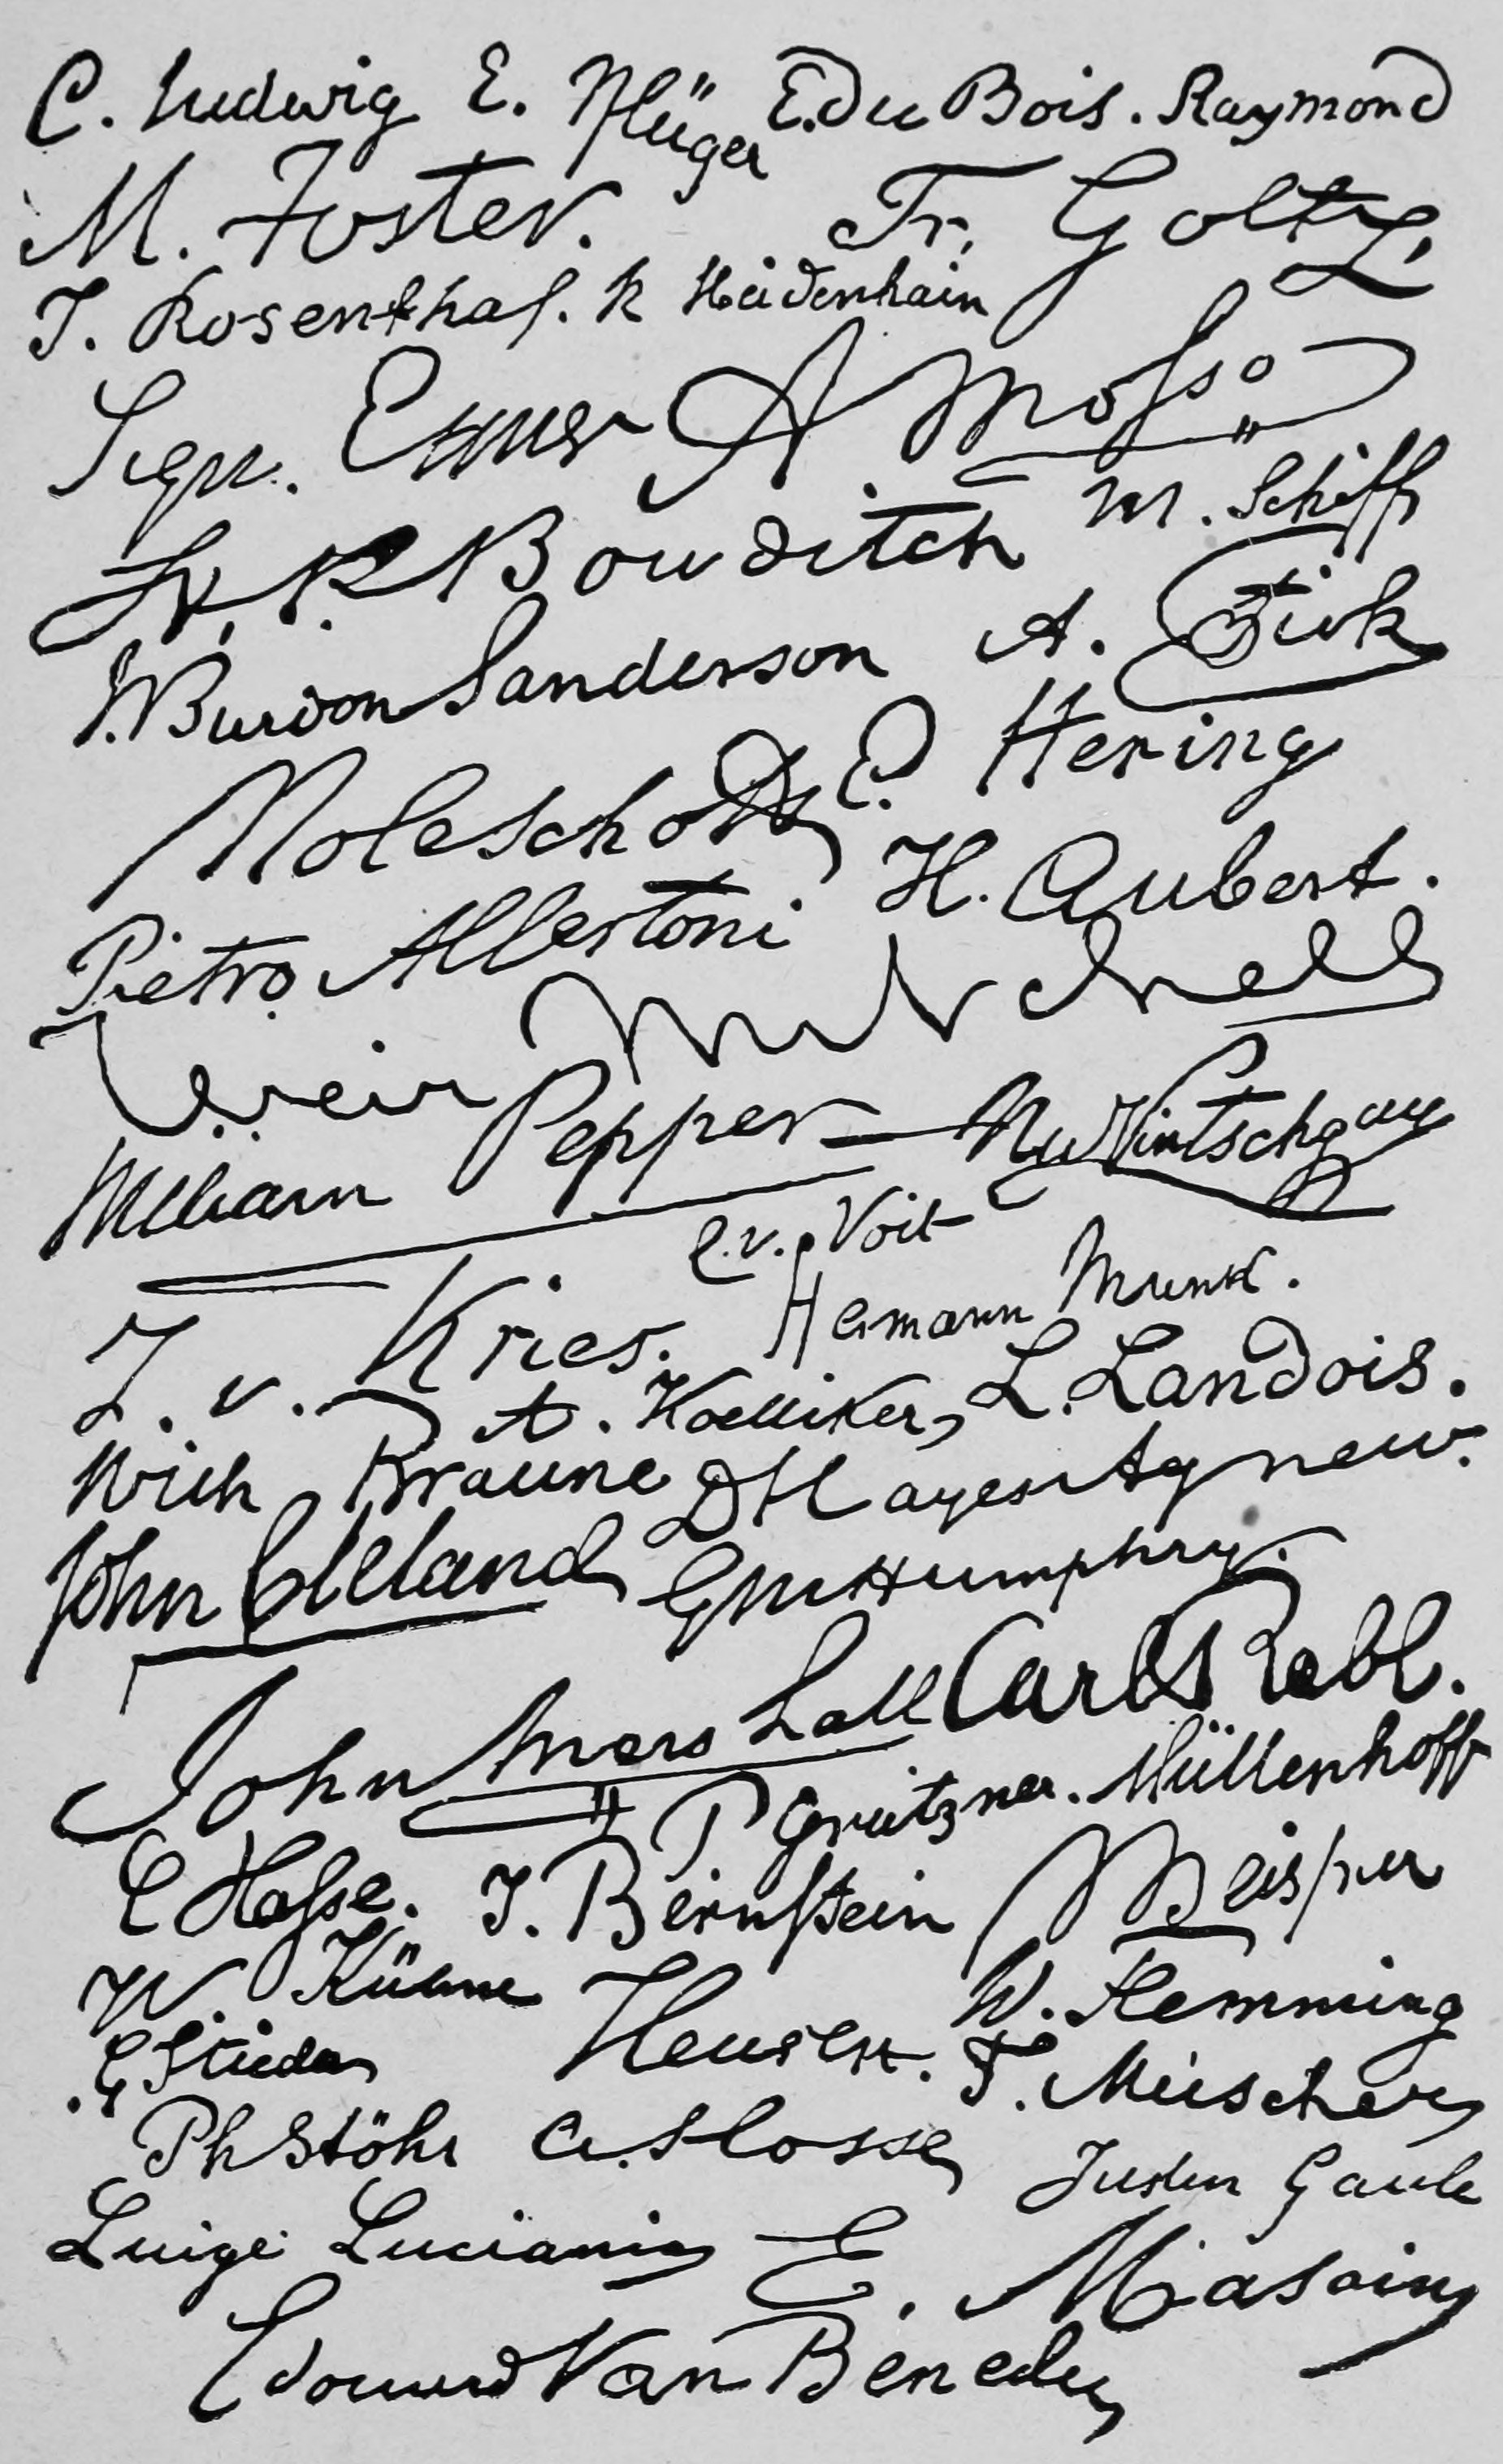 C. Ludwig E. Pflüger E. du Bois. Raymond
M. Foster. Fr. Goltz,
J. Rosenthal. R Heidenhain
Sigm. Exner A. Mosso
M. Schiff
H. P. Bowditch
J. Burdon Sanderson A. Fick
Moleschott E. Hering
Pietro Albertoni H. Aubert.
Weir Mitchell
William Pepper M v Vintschgau
C. v. Voit
J. v. Kries. Hermann Munk.
A. Koelliker, L. Landois.
Wilh Braune D Hayes Agnew.
John Cleland GM Humphry.
John Marshall Carl Rabl.
P Grützner. Müllenhoff
C Hasse. J. Bernstein Meissner
W. Kühne Hensen. W. Flemming
Stieda F. Miescher
Ph Stöhr A. Slosse Justus Gaule
Luigi Luciani E. Masoin
Edouard Van Beneden